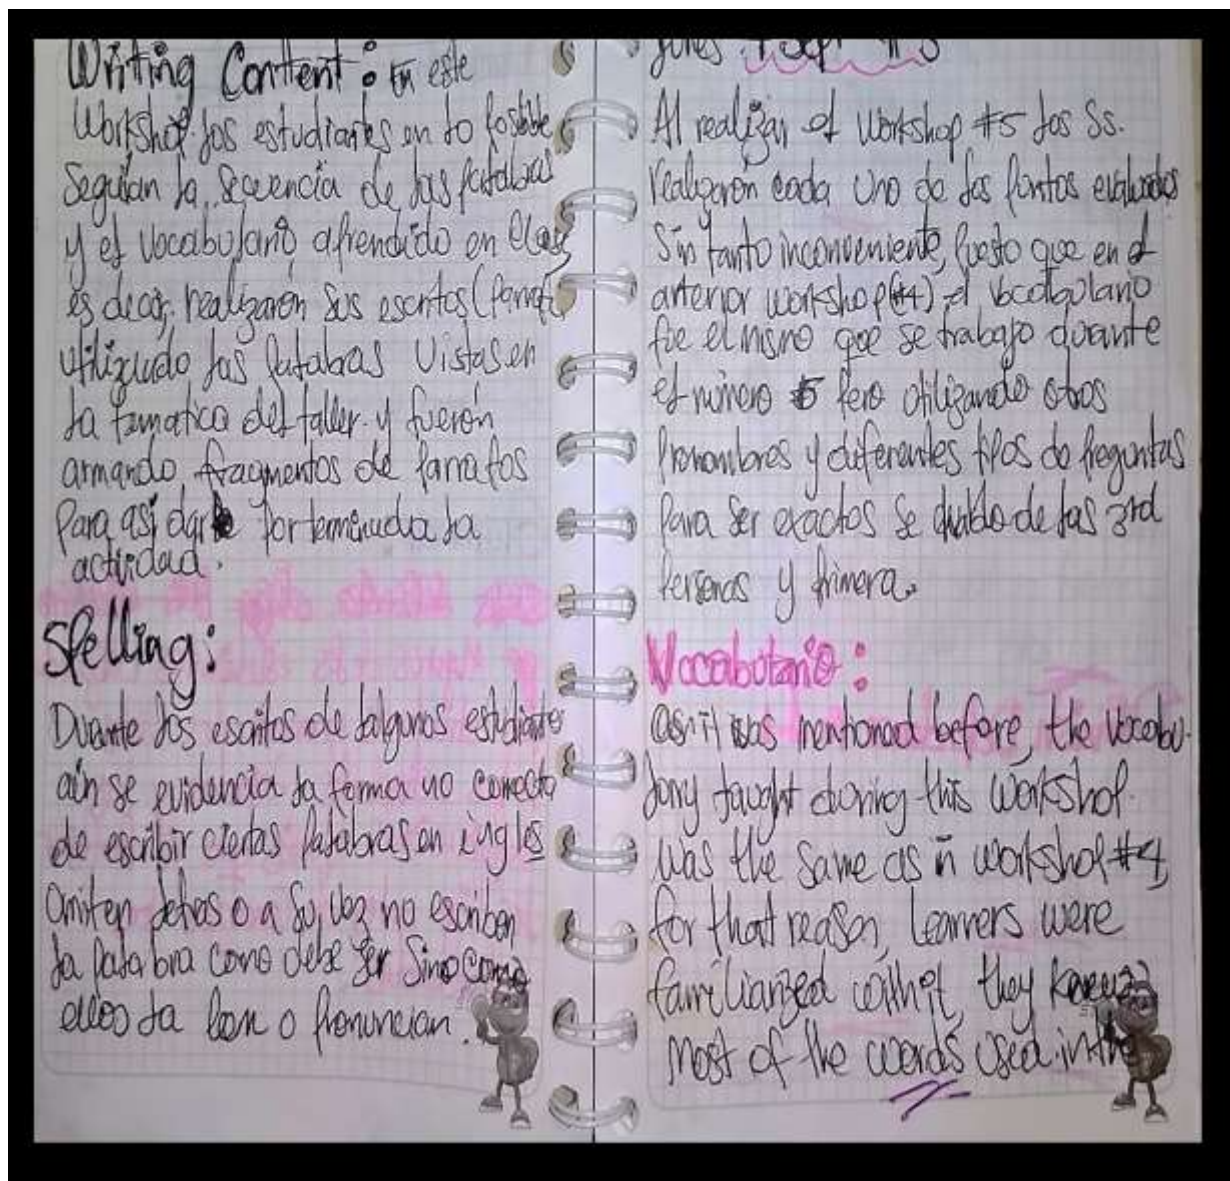 Writing Content: En este
Workshop los estudiantes en lo posible
Seguían la secuencia de las palabras
y el vocabulario aprendido en clas
es decir, realizarón sus escritos (parraf
utilizudo las palabras Vistas en
la tematica del taller. y fuerón
armando fragmentos de parrafos
Para así darle por terminada la
actividad.
Spelling:
Durante los escritos de algunos estudiantes
aún se evidencia la forma no correcta
de escribir ciertas palabras en ingles
Omiten letras o a su vez no escriben
la palabra como debe ser Sino como
ellos la leen o pronuncian.
Sept #5
Al realizar el Workshop #5 los Ss.
realizarón cada uno de los puntos evaluados
Sin tanto inconveniente, puesto que en el
anterior workshop (#4) el vocabulario
fue el mismo que se trabajo durante
el número 5 pero utilizando otros
Pronombres y diferentes tipos de preguntas
Para ser exactos se de las 3rd
Personas y primera.
Vocabulario:
as it was mentioned before, the vocabu-
lary taught during this workshop.
was the same as in workshop #4,
for that reason, learners were
familiarized with it, they knew
most of the words used in the